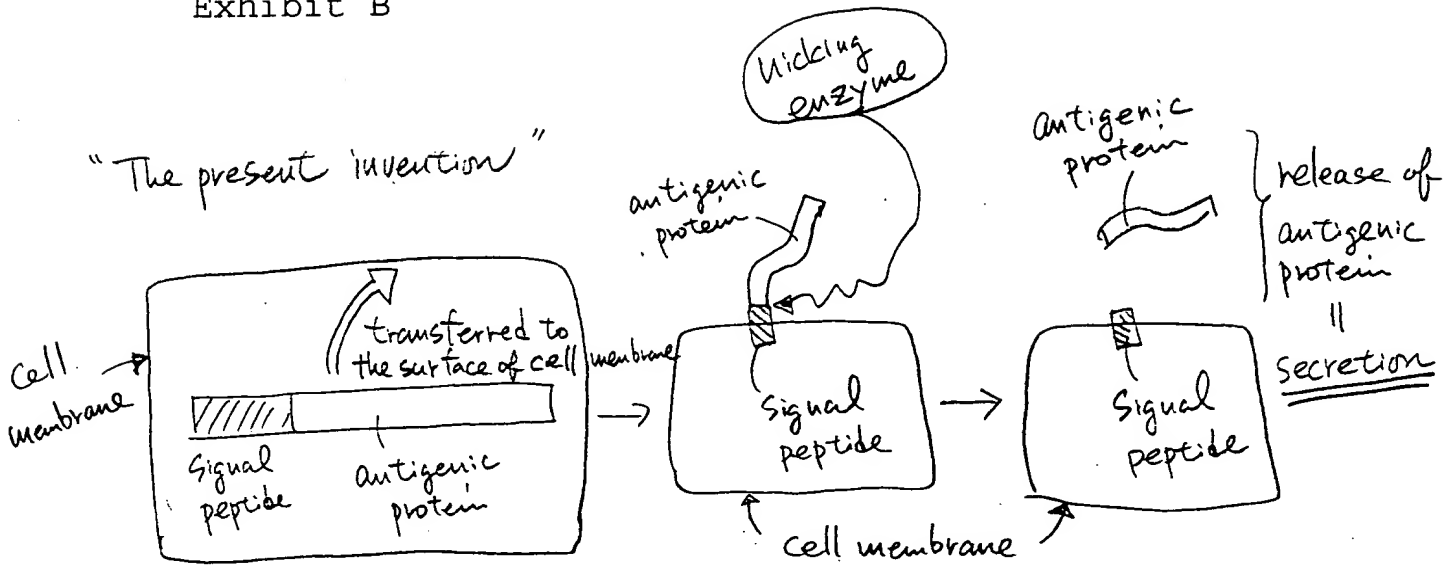 Exhibit B
"The present invention"
cell
membrane
transferred to
the surface of cell membrane
signal
peptide
antigenic
protein
nicking
enzyme
antigenic
protein
signal
peptide
cell membrane
antigenic
protein
signal
peptide
release of
antigenic
protein
=
secretion